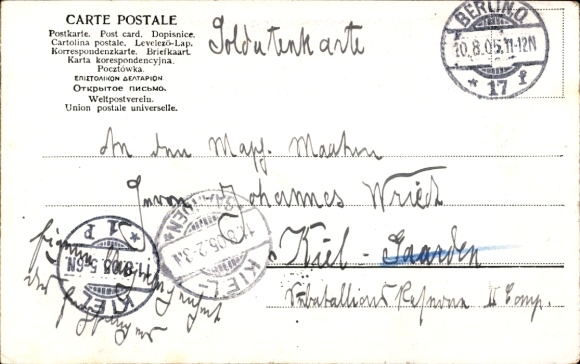 CARTE POSTALE
Postkarte. Post card. Dopisnice.
Cartolina postale. Levelező-Lap.
Korrespondenzkarte. Briefkaart.
Karta korespondencyjna.
Pocztówka.
ΕΠΙΣΤΟΛΙΚΟΝ ΔΕΛΤΑΡΙΟΝ
Открытое письмо.
Weltpostverein.
Union postale universelle.
Soldatenkarte
BERLIN.O.
10.8.05.11-12N
* 17 f
An den Matr. Maaten
Herrn Johannes Wriedt
Kiel-Gaarden
I. Comp.
GAARDEN
11.8.05.2-3N
KIEL-
* 1 P
11.8.05.5-6N
KIEL
Eigene Angelegenheit
des Empfängers